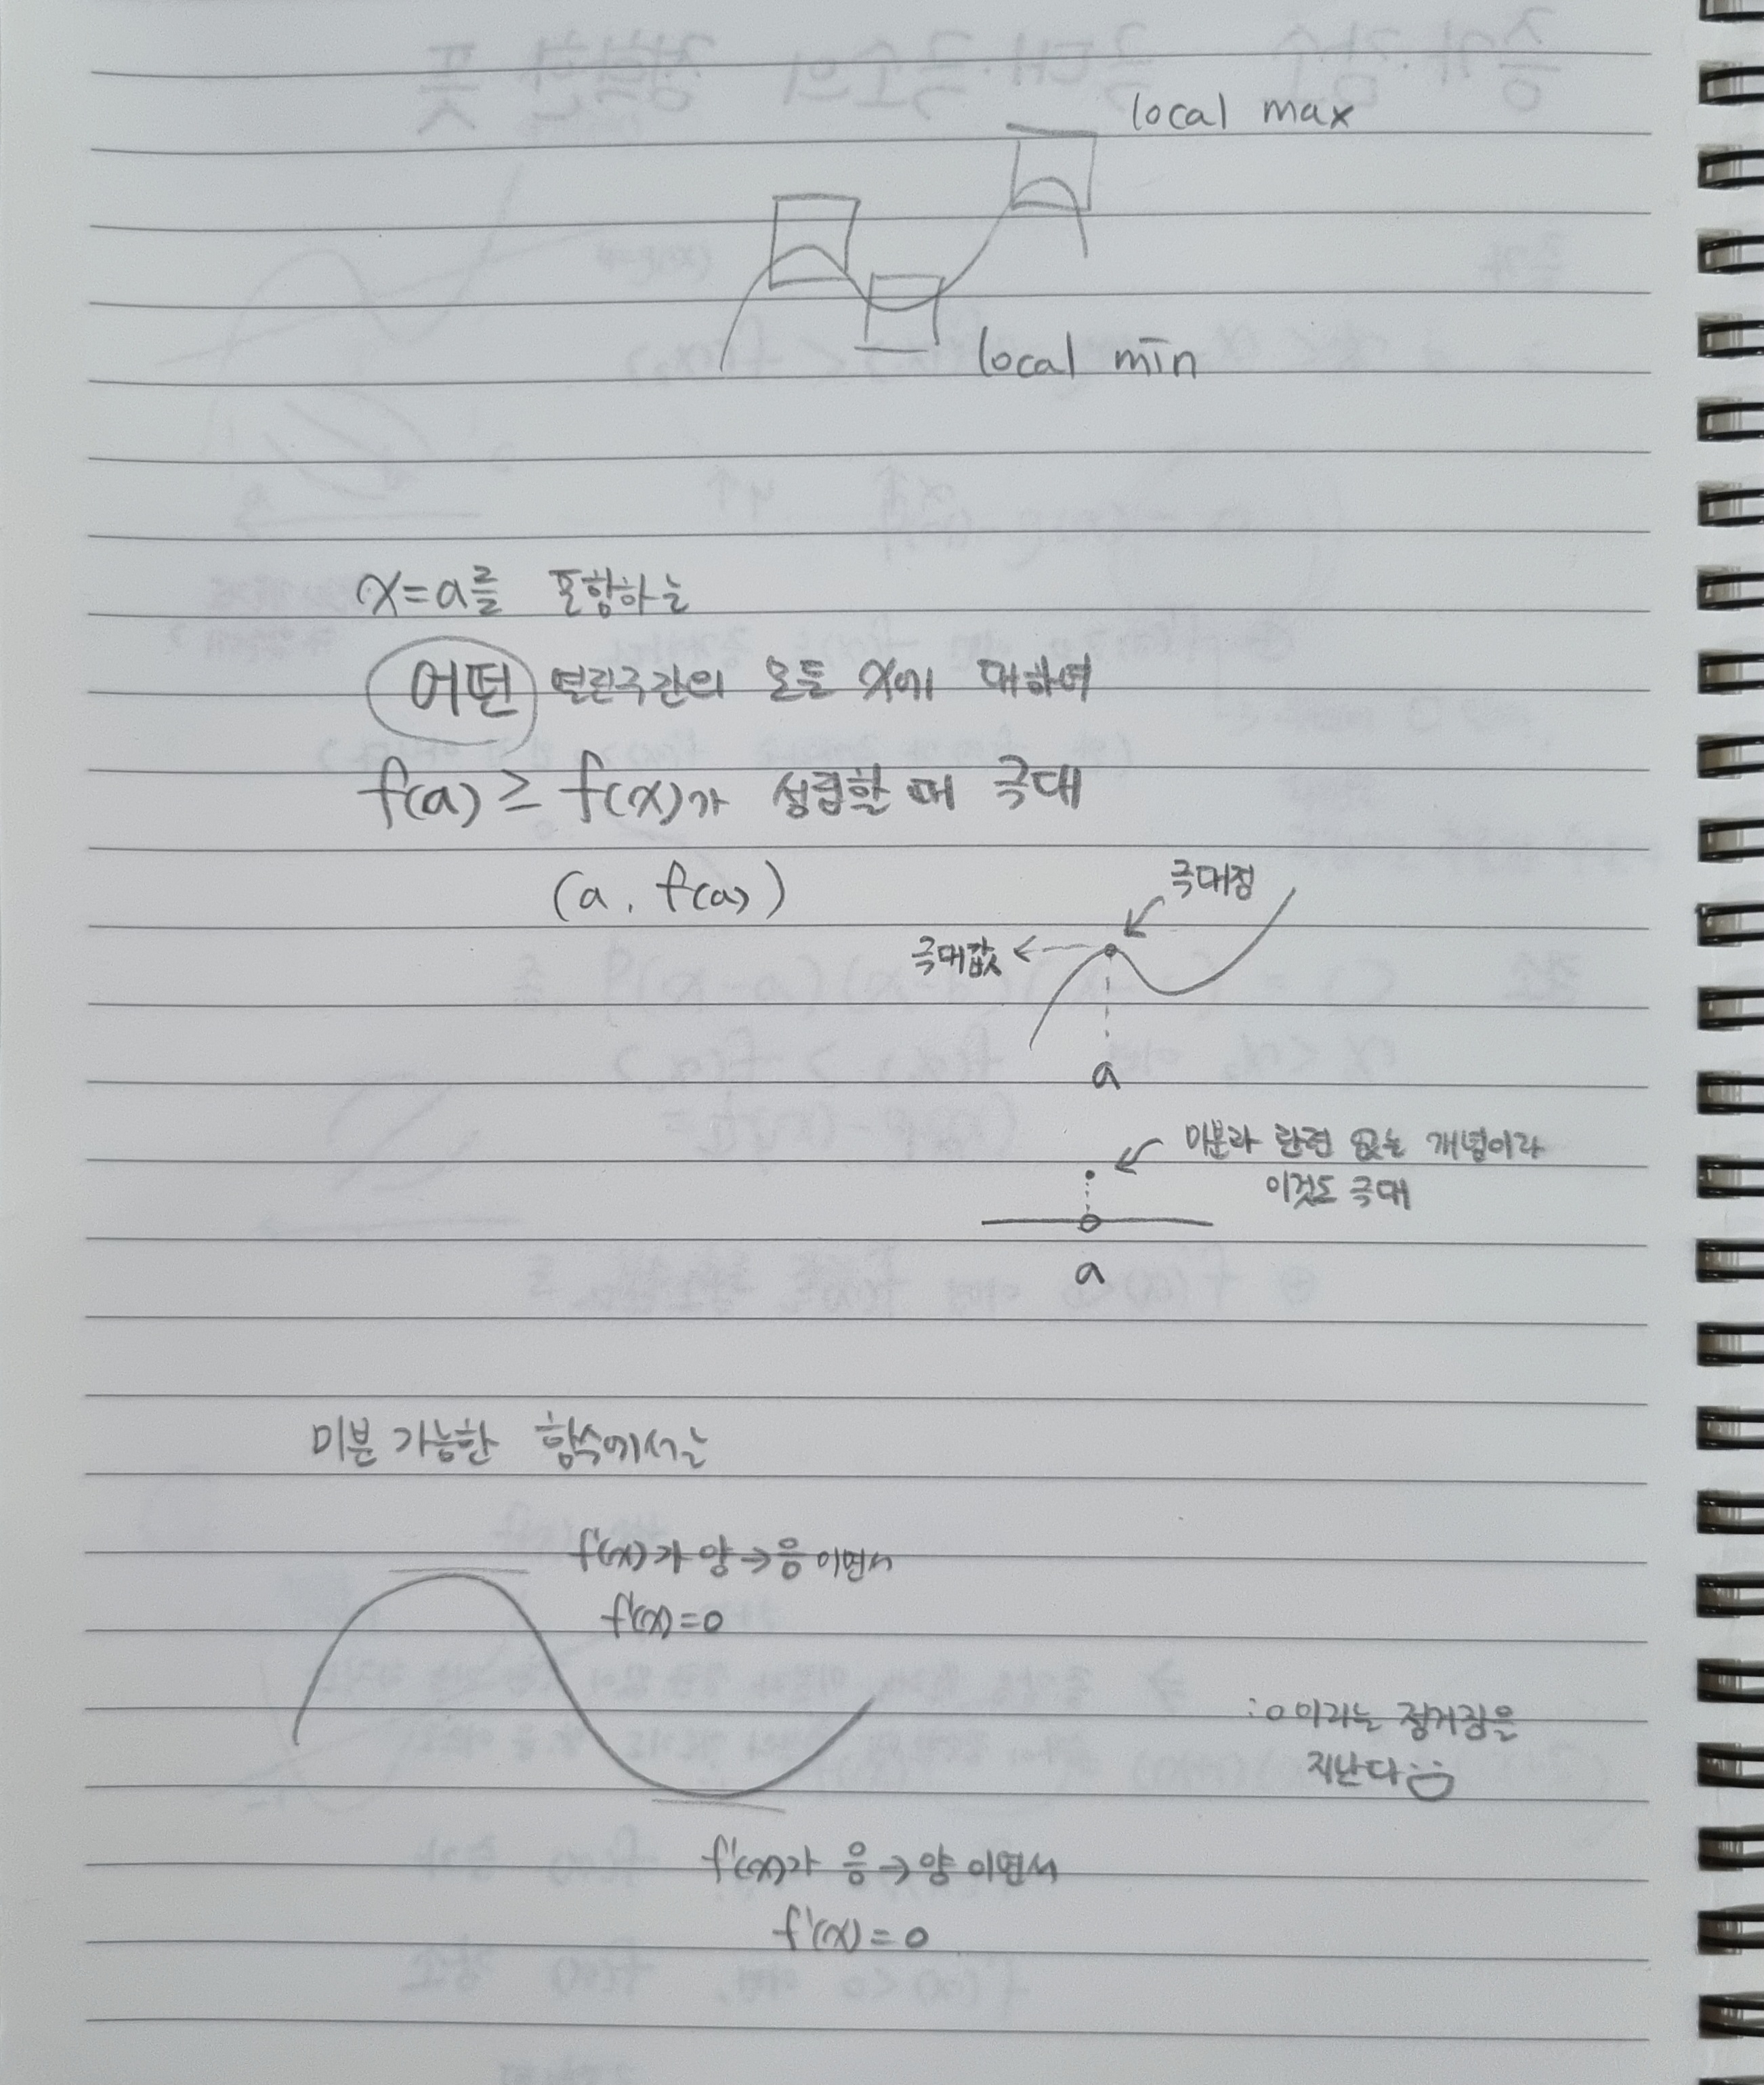 local max
local min
x=a를 포함하는
어떤 열린구간의 모든 x에 대하여
f(a) ≥ f(x)가 성립할 때 극대
(a, f(a))
극대점
극대값
a
미분과 관련 없는 개념이라
이것도 극대
a
미분 가능한 함수에서는
f'(x)가 양→음 이면서
f'(x)=0
:0이라는 정거장을
지난다
f'(x)가 음→양 이면서
f'(x)=0